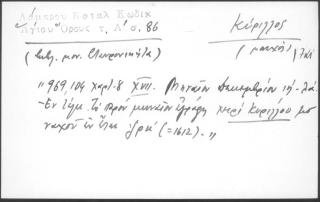 Λάμπρου Καταλ Κωδίκ
Ἁγίου Ὄρους τ. Α΄ σ. 86
Κύριλλος
(μοναχός)
(βιβλ. μον. Σταυρονικήτα)
"969, 104 χαρτ. 8 XVII. Μηναῖον Δεκεμβρίου ιη΄ - λα.
- Ἐν τέλει Τὸ παρὸν μηναῖον ἐγράφη χειρὶ Κυρίλλου μο
ναχοῦ ἐν ἔτει ͵ζρκ΄ (=1612)."